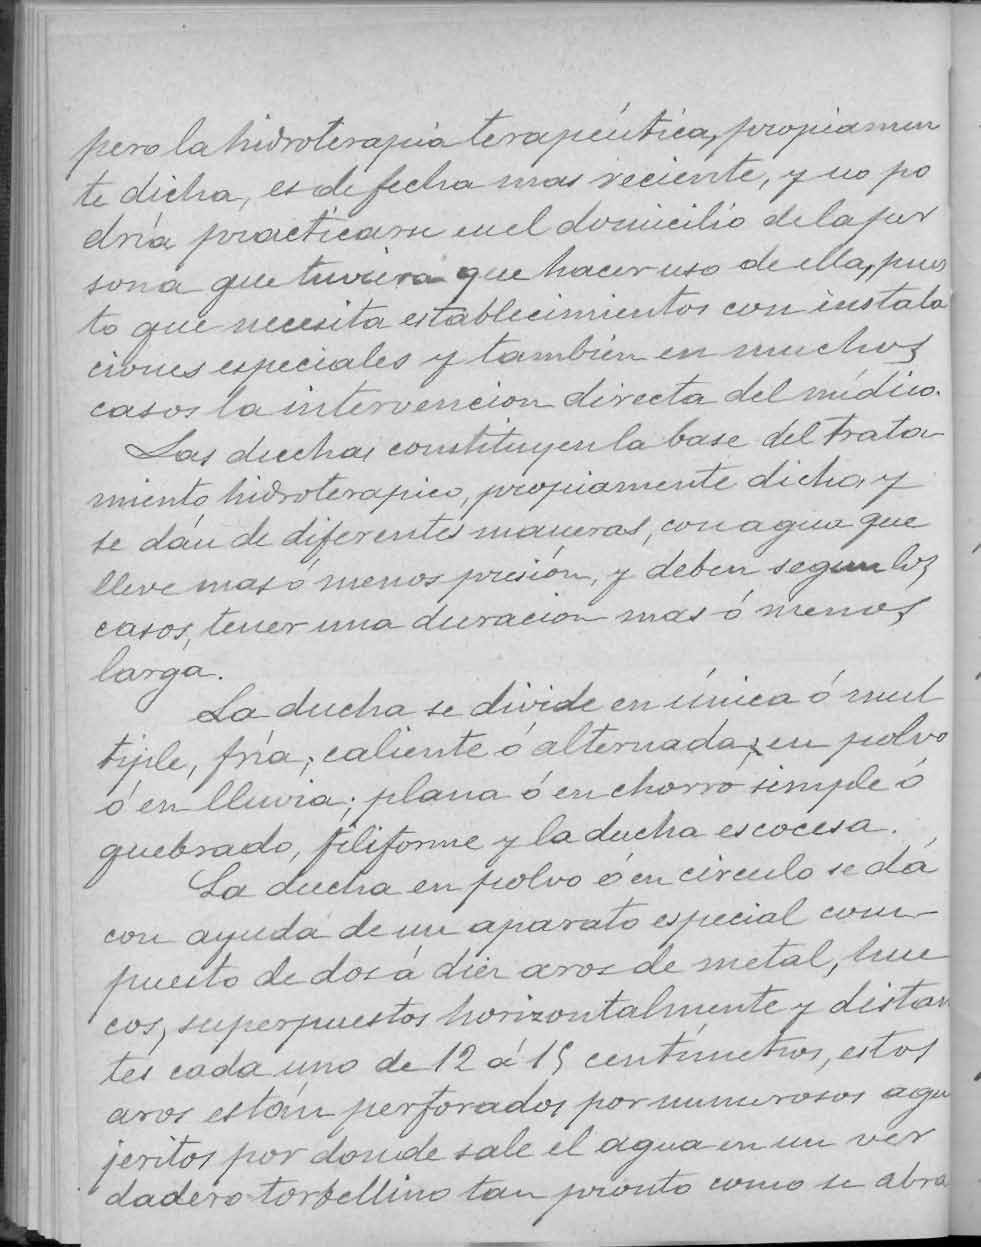 pero la hidroterapia terapéutica, propiamen
te dicha, es de fecha mas reciente, y no po
dría practicarse en el domicilio de la per
sona que tuviera que hacer uso de ella, pues
to que necesita establecimientos con instala
ciones especiales y tambien en muchos
casos la intervencion directa del médico.
Las duchas constituyen la base del trata-
miento hidroterapico, propiamente dicho, y
se dán de diferentes maneras, con agua que
lleve mas ó menos presión, y deben segun los
casos, tener una duracion mas ó menos
larga.
La ducha se divide en única ó mul
tiple, fría, caliente ó alternada; en polvo
ó en lluvia; plana ó en chorro simple ó
quebrado, filiforme y la ducha escocesa.
La ducha en polvo ó en circulo se dá
con ayuda de un aparato especial com-
puesto de dos á diez aros de metal, hue
cos, superpuestos horizontalmente y distan
tes cada uno de 12 á 15 centímetros, estos
aros están perforados por numerosos agu
jeritos por donde sale el agua en un ver
dadero torbellino tan pronto como se abra